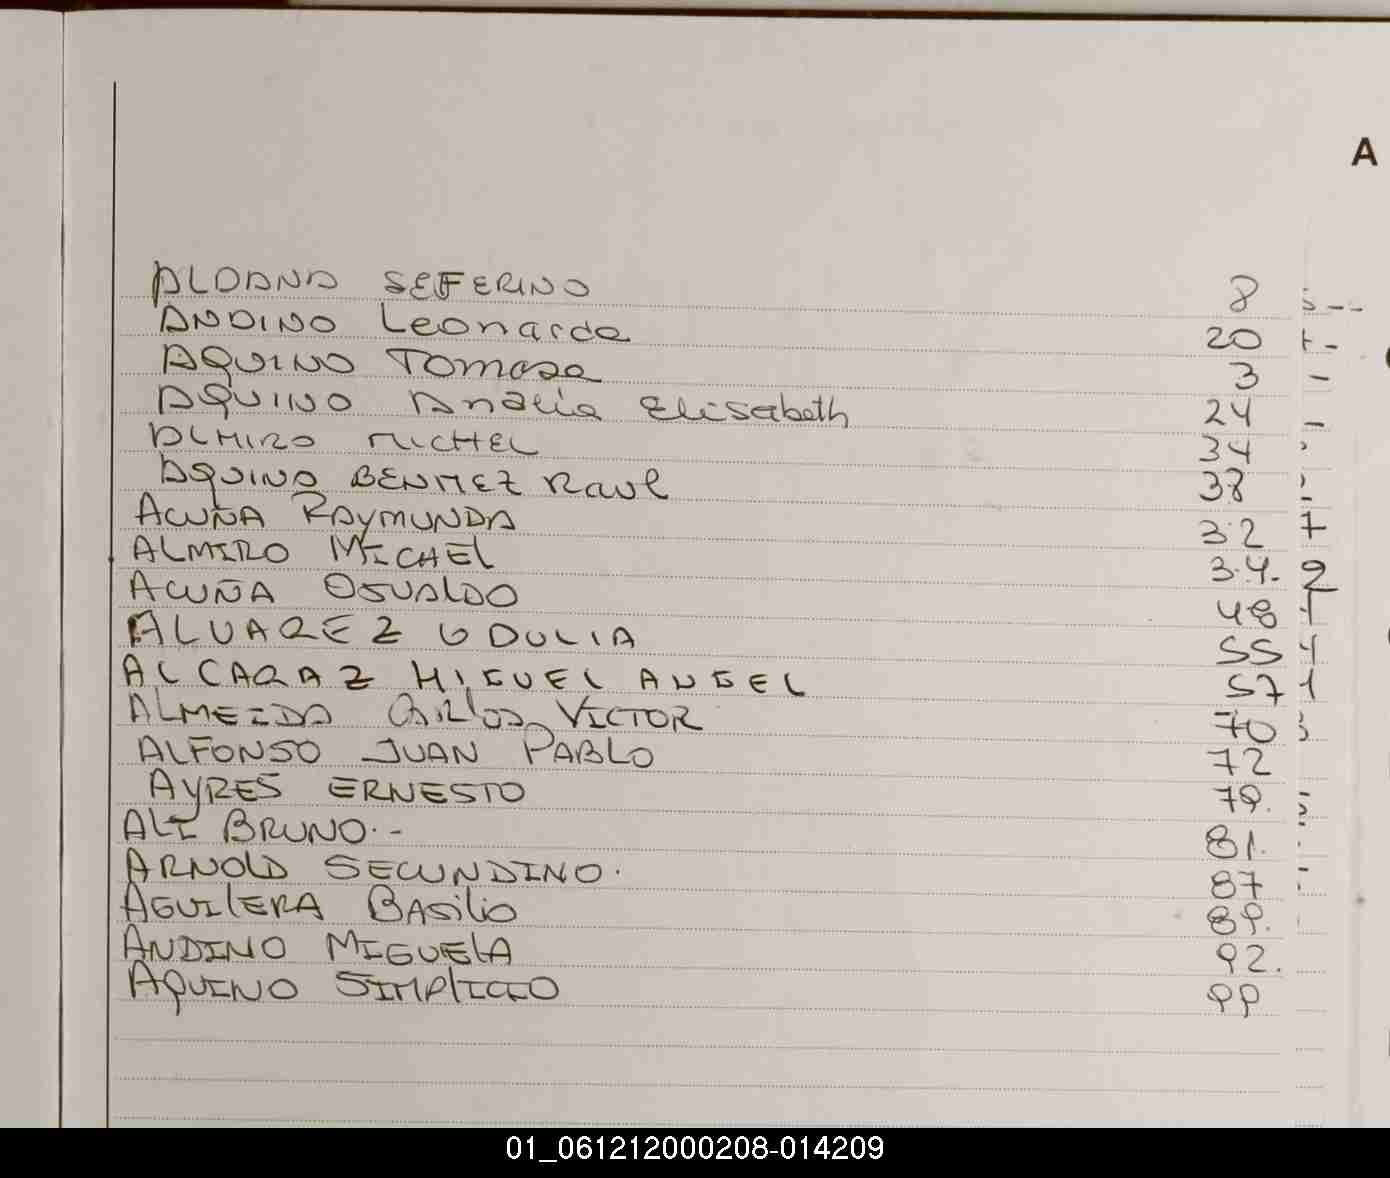 A
ALDANA SEFERINO 8
ANDINO Leonarda 20
AQUINO Tomasa 3
AQUINO Analia Elisabeth 24
ALMIRO MICHEL 34
AQUINO BENITEZ Raul 38
ACUÑA RAYMUNDA 32
ALMIRO MICHEL 34.
ACUÑA OSVALDO 48
ALVAREZ UDULIA 55
ALCARAZ MIGUEL ANGEL 57
ALMEIDA CARLOS VICTOR 70
ALFONSO JUAN PABLO 72
AYRES ERNESTO 79.
ALI BRUNO.- 81.
ARNOLD SECUNDINO. 87
AGUILERA BASILIO 89.
ANDINO MIGUELA 92.
AQUINO SIMPLICIO 99
01_061212000208-014209